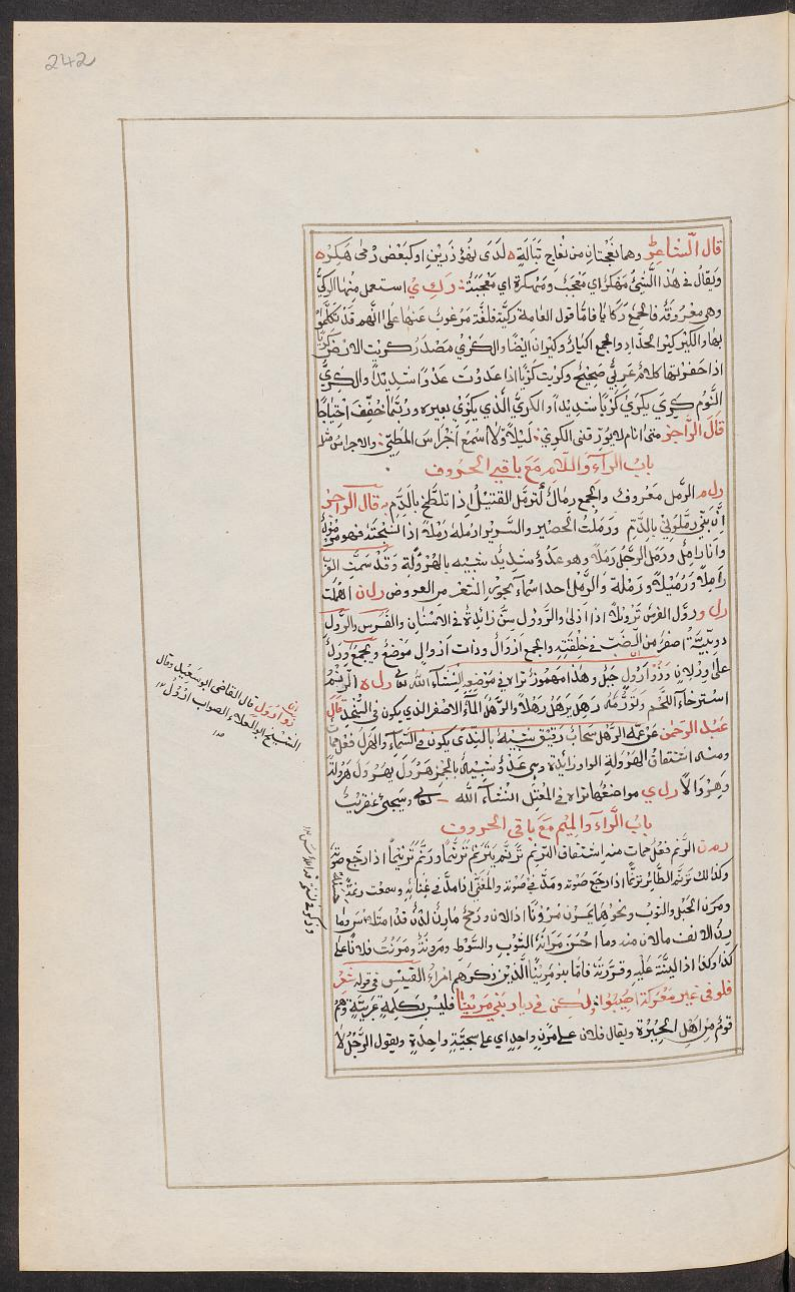 242
قال الشاعر وهما نعجتان من نعاج تبالة لدى بؤذرين او كبعض دمى هكر
ويقال في هذا الشئ مهكر اي معجب ومهكرة اي معجبة رك ي استعمل منها الركي
وهي معروفة فالجمع ركايا فاما قول العامة ركية فلغة مرغوب عنها على انهم قد تكلموا
بها والكير كير الحداد والجمع اكيار وكيران ايضا والكري مصدر كريت الارض كريا
اذا حفرتها كلام عربي صحيح وكريت كريا اذا عدوت عدوا شديدا والكرى
النوم كري يكرى كرى شديدا والكري الذي يكري بعيره وربما خفف احتياجا
قال الراجز متى انام لا يؤرقني الكري ليلا ولا اسمع اجراس المطي والاجراس مثل
باب الراء واللام مع باقي الحروف
رل م الرمل معروف والجمع رمال ترمل القتيل اذا تلطخ بالدم قال الراجز
ان بني رملوني بالدم ورملت الحصير والسرير ارمله رملا اذا نسجته فهو مرمول
وانا رامل ورمل الرجل رملا وهو عدو شديد شبيه بالهرولة وقد سمت العرب
راملا ورميلا ورملة والرمل احد اسماء بحور الشعر من العروض رل ن اهملت
رل و رول الفرس ترويلا اذا ادلى والروول سن زائدة في الاسنان والفرس والورل
دويبة اصغر من الضب في خلقته والجمع اورال وذات اورال موضع ويجمع ورل
على ورلان وذو ارول جبل وهذا مهموز تراه في موضعه ان شاء الله تعالى رل ه الرهل
استرخاء اللحم وتورمه رهل يرهل رهلا والرهل الماء الاصفر الذي يكون في السخد قال
عبد الرحمن عن عمه الرهل سحاب رقيق شبيه بالندى يكون في السماء والهرل فعل ممات
ومنه اشتقاق الهرولة الواو زائدة وهي عدو شبيه بالجمز هرول يهرول هرولة
وهروالا رل ي مواضعها تراه في المعتل ان شاء الله تعالى وسيجئ عفريت
باب الراء والميم مع باقي الحروف
رم ن الرنم فعل ممات منه اشتقاق الترنم ترنم يترنم ترنما ورنم ترنيما اذا رجع صوته
وكذلك ترنم الطائر ترنما اذا رجع صوته ومد في صوته والمغني اذا مد في غنائه وسمعت رنمة حسنة
ومرن الحبل والثوب ونحوهما يمرن مرونا اذا لان ورمح مارن لدن قد املاس وما
رن الانف مالان منه وما احسن مرانة الثوب والسوط ومرونة ومرنت فلانا على
كذا وكذا اذا لينته عليه وقررته فاما بنو مرينا الذين ذكرهم امرؤ القيس في قوله شعر
فلو في غير معركة اصيبوا ولكن في ديار بني مرينا فليس بكلمة عربية وهم
قوم من اهل الحيرة ويقال فلان على مرن واحد اي على سجية واحدة ويقول الرجل لا
ذو ارول قال القاضي ابو سعيد وقال
الشيخ ابو العلاء الصواب ارول